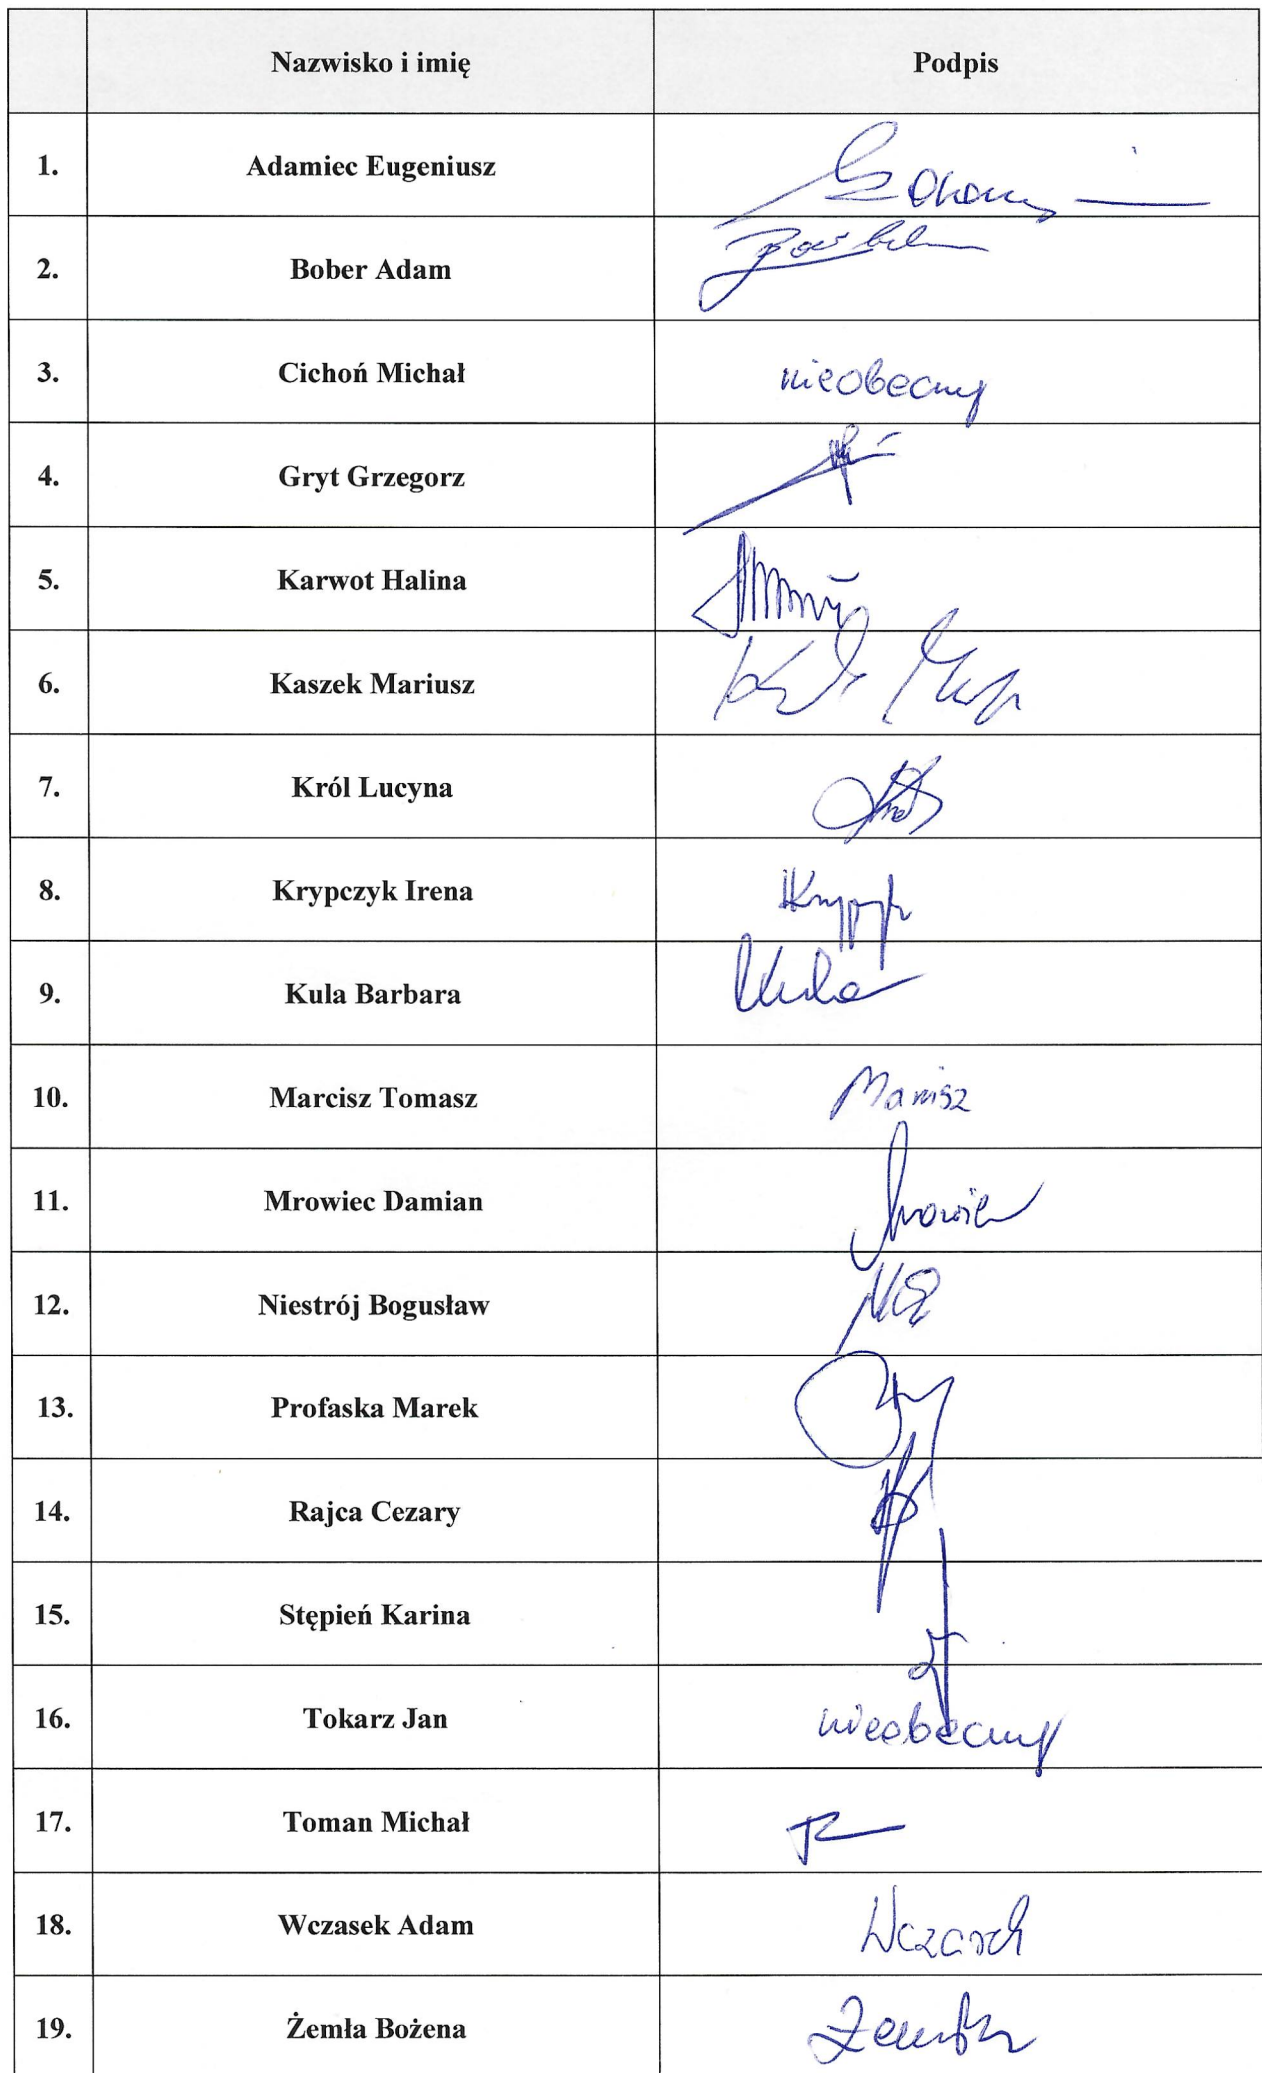 Nazwisko i imię Podpis
1. Adamiec Eugeniusz
2. Bober Adam
3. Cichoń Michał nieobecny
4. Gryt Grzegorz
5. Karwot Halina
6. Kaszek Mariusz
7. Król Lucyna
8. Krypczyk Irena
9. Kula Barbara Kula
10. Marcisz Tomasz Marcisz
11. Mrowiec Damian
12. Niestrój Bogusław
13. Profaska Marek
14. Rajca Cezary
15. Stępień Karina
16. Tokarz Jan nieobecny
17. Toman Michał
18. Wczasek Adam Wczasek
19. Żemła Bożena